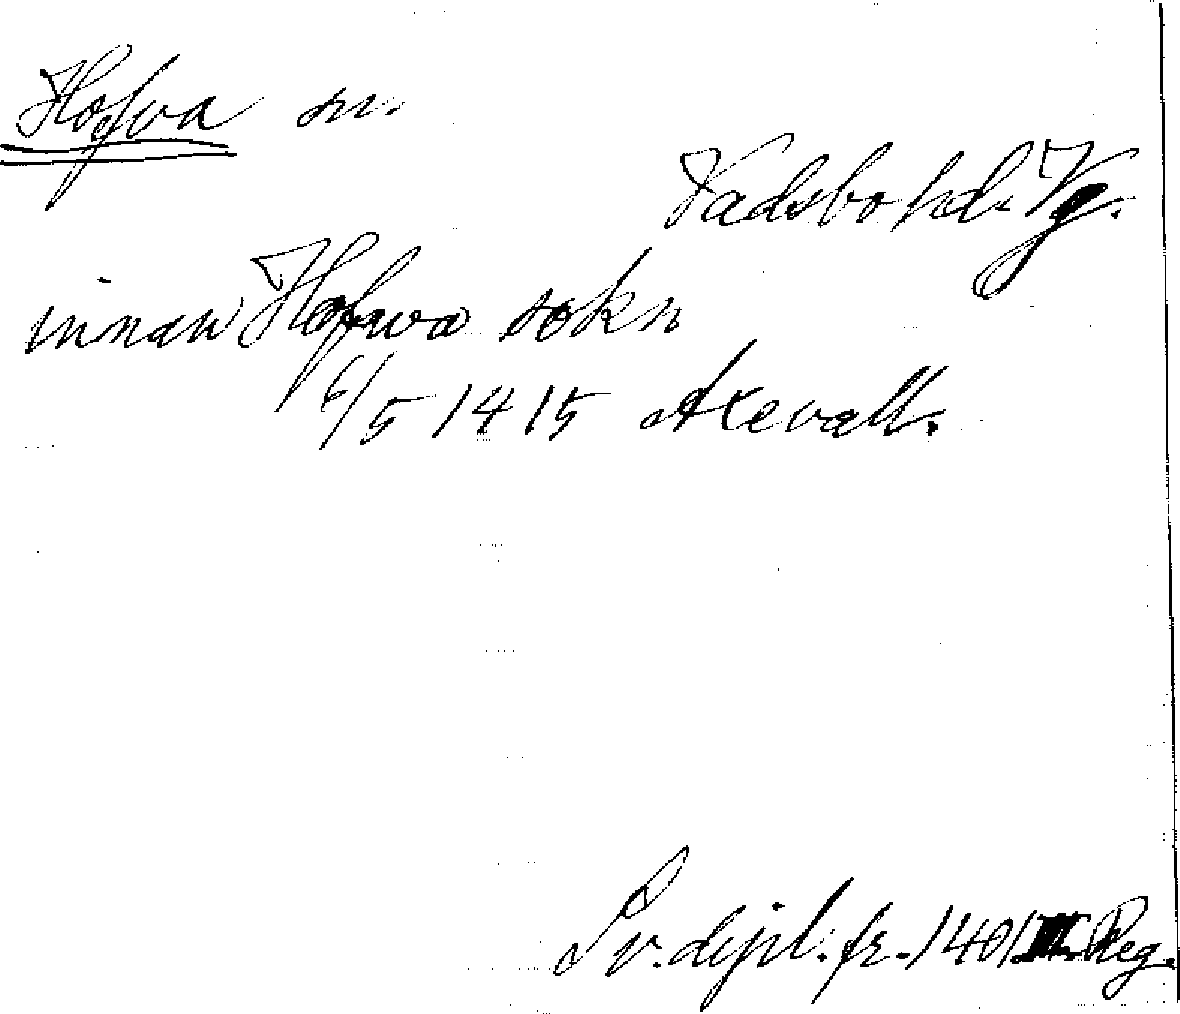 Hofva sn.
Vadsbo hd. Vg.
innan Hofwa sokn
6/5 1415 Axevall.
Sv. dipl. fr. 1401 III. Reg.